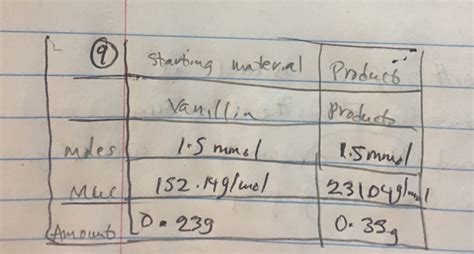 9 Starting material Product
Vanillin products
moles 1.5 mmol 1.5 mmol
152.14g/mol 231.04g/mol
Amount 0.23g 0.35g